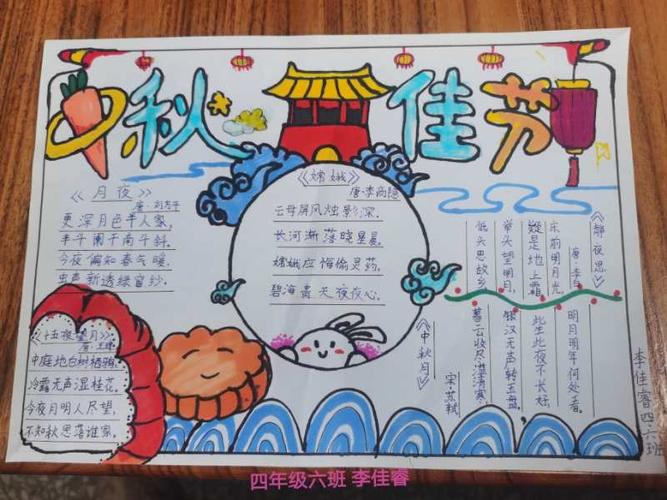 中秋佳节
《月夜》
唐·刘方平
更深月色半人家,
北斗阑干南斗斜.
今夜偏知春气暖,
虫声新透绿窗纱.
《嫦娥》
唐·李商隐
云母屏风烛影深,
长河渐落晓星晨.
嫦娥应悔偷灵药,
碧海青天夜夜心.
《静夜思》
唐·李白
床前明月光,
疑是地上霜.
举头望明月,
低头思故乡.
《十五夜望月》
唐·王建
中庭地白树栖鸦,
冷露无声湿桂花.
今夜月明人尽望,
不知秋思落谁家.
《中秋月》
宋·苏轼
暮云收尽溢清寒,
银汉无声转玉盘,
此生此夜不长好,
明月明年何处看.
李佳睿四·六班
四年级六班 李佳睿